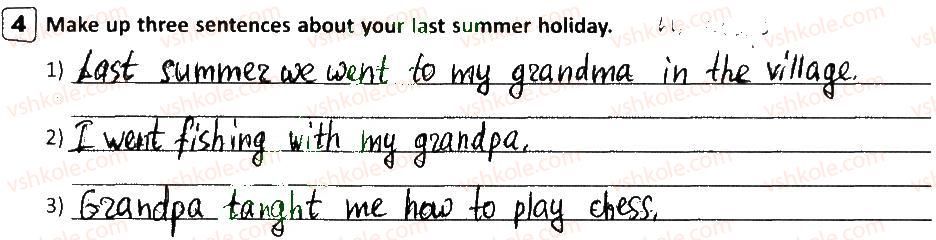 4 Make up three sentences about your last summer holiday.
1) Last summer we went to my grandma in the village.
2) I went fishing with my grandpa.
3) Grandpa tanght me how to play chess.